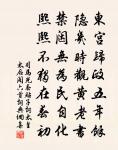 東宮歸政五年餘
隱几時觀黃老書
禁闥無為民自化
熙熙不獨在春初
司馬光春貼子詞太皇
太后閤六首